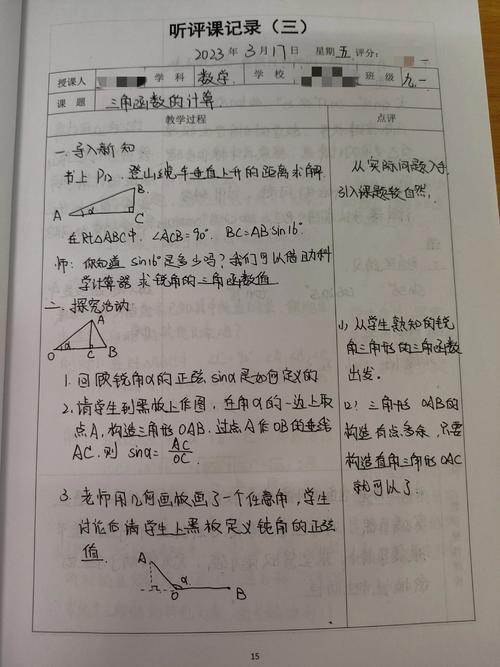 听评课记录（三）
2023年 3月 17日 星期 五 评分：
授课人 学 科 数学 学 校 班 级 九.一
课 题 三角函数的计算
教学过程 点评
一.导入新知
书上 P12，登山缆车垂直上升的距离求解.
A α B C
在Rt△ABC中，∠ACB=90°，BC=ABsin16°
师：你知道 sin16°是多少吗？我们可以借助科
学计算器求锐角的三角函数值
二.探究活动
A
O α C B
1.回顾锐角α的正弦 sinα是如何定义的
2.请学生到黑板上作图，在角α的一边上取
点A，构造三角形OAB.过点A作OB的垂线
AC.则 sinα= AC/OC.
3.老师用几何画板画了一个任意角，学生
讨论后请学生上黑板定义钝角的正弦
值.
A α O B
从实际问题入手，
引入课题较自然.
1) 从学生熟知的锐
角三角形的三角函数
出发.
2) 三角形 OAB的
构造有点多余，只要
构造直角三角形OAC
就可以了.
15